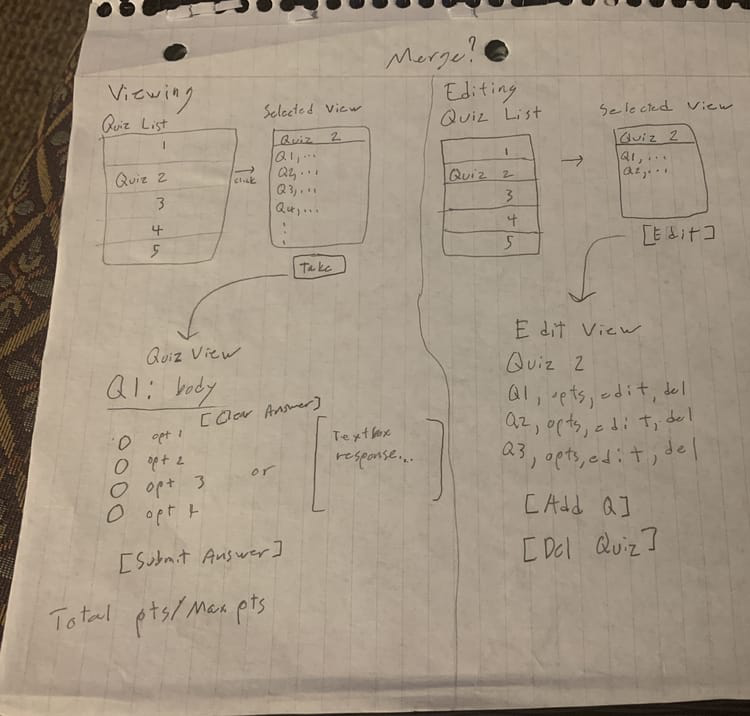 Merge?
Viewing
Quiz List
1
Quiz 2
3
4
5
click
Selected View
Quiz 2
Q1,...
Q2,...
Q3,...
Q4,...
[Take]
Quiz View
Q1: body
[Clear Answer]
opt 1
opt 2
opt 3
opt 4
or
[Textbox
response...]
[Submit Answer]
Total pts/Max pts
Editing
Quiz List
1
Quiz 2
3
4
5
Selected View
Quiz 2
Q1,...
Q2,...
[Edit]
Edit View
Quiz 2
Q1, opts, edit, del
Q2, opts, edit, del
Q3, opts, edit, del
[Add Q]
[Del Quiz]